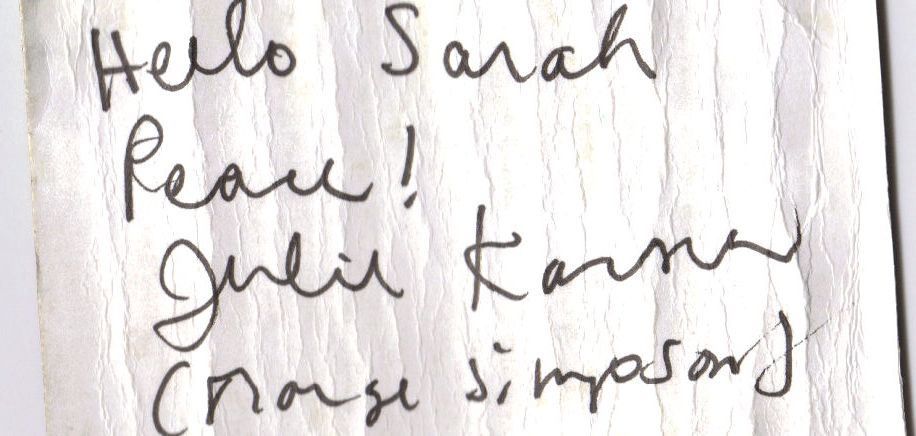 Hello Sarah
Peace!
Julie Kavner
(Marge Simpson)